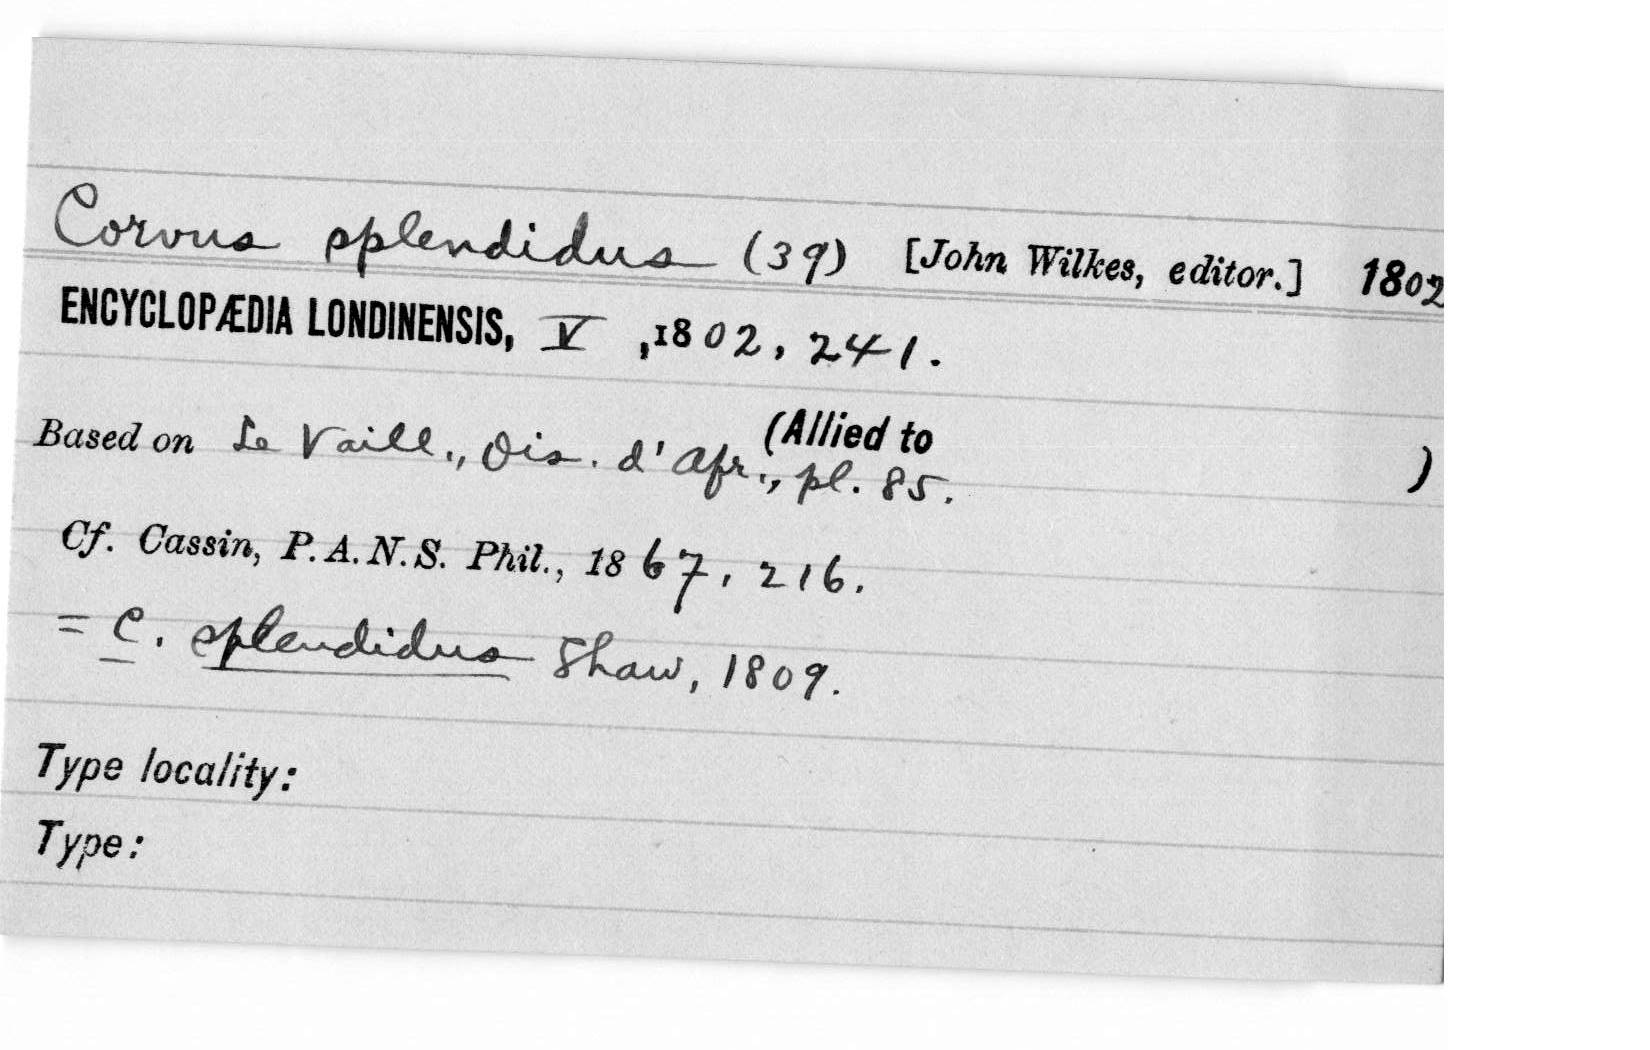 Corvus splendidus (39) [John Wilkes, editor.] 1802
ENCYCLOPÆDIA LONDINENSIS, V, 1802, 241.
(Allied to )
Based on Le Vaill., Ois. d'Afr., pl. 85.
Cf. Cassin, P. A. N. S. Phil., 1867, 216.
= C. splendidus Shaw, 1809.
Type locality:
Type: